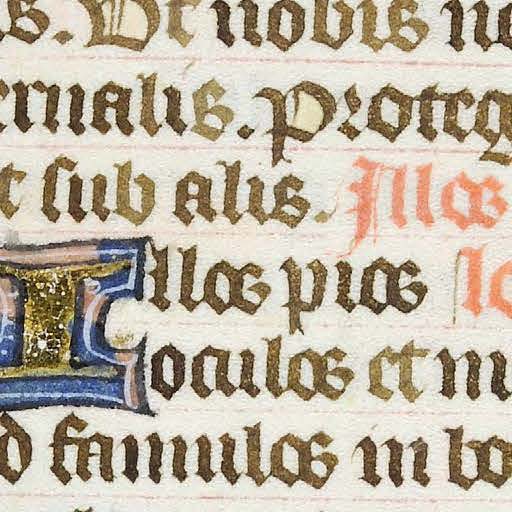 s. Ut nobis no
ernalis. Proteg
t sub alis. Illos
Illos pios Io
oculos et mi
d famulos in bo